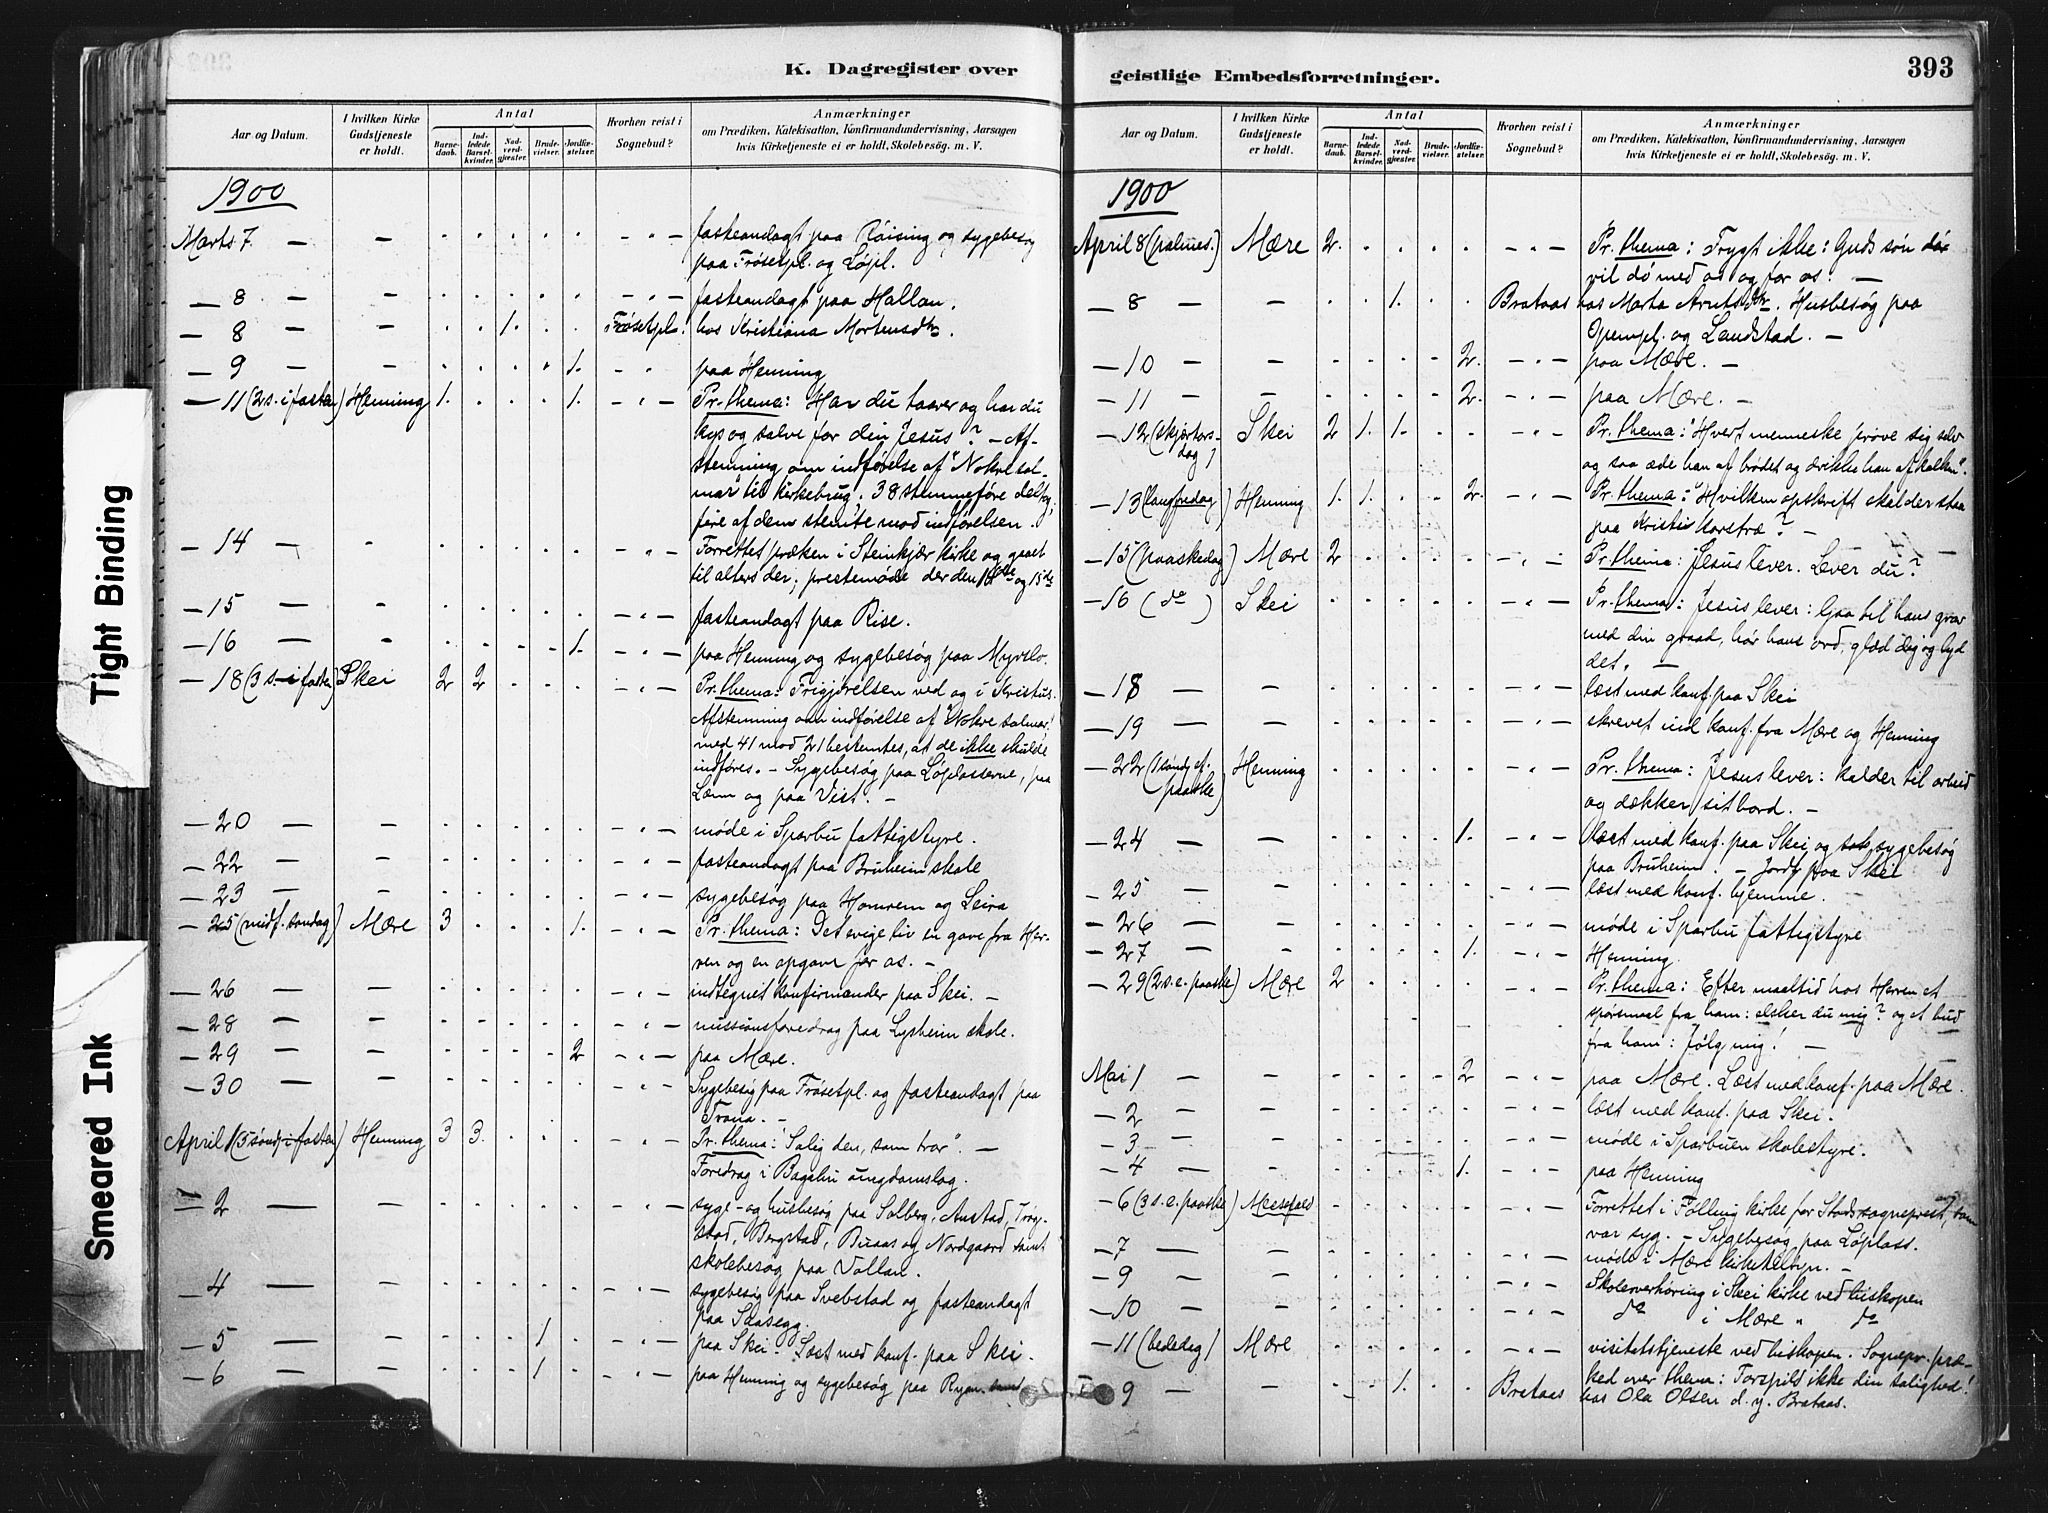 K. Dagregister over
Aar og Datum. I hvilken Kirke Gudstjeneste er holdt. Antal Barnedaab. Indledede Barselkvinder. Nadverdgjester. Brudevielser. Jordfæstelser. Hvorhen reist i Sognebud? Anmærkninger om Prædiken, Katekisation, Konfirmandundervisning, Aarsagen hvis Kirketjeneste ei er holdt, Skolebesøg. m. V.
1900
Marts 7. — — fasteandagt paa Røising og sygebesøg
paa Frøsetpl. og Løpl.
— 8 — — fasteandagt paa Hallan.
— 8 — — 1. Frøsetpl. hos Kristiana Mortensdtr.
— 9 — — 1. paa Henning
— 11 (2 s. i fasten) Henning 1. 1. Pr. thema: Har du taarer og har du
kys og salve for din Jesus? — Af-
stemning om indførelse af "Nokre sal-
mar" til kirkebrug. 38 stemmeføre deltog,
fire af dem stemte mod indførelsen.
— 14 — Forrettet præken i Steinkjær kirke og gaaet
til alters der; prestemøde der den 14de og 15de
— 15 — fasteandagt paa Rise.
— 16 — 1. paa Henning og sygebesøg paa Myrslo.
— 18 (3 s. i fasten) Skei 2 2 Pr. thema: Frigjørelsen ved og i Kristus.
Afstemning om indførelse af "Nokre salmar";
med 41 mod 21 bestemtes, at de ikke skulde
indføres. — Sygebesøg paa Løplasserne, paa
Lænn og paa Vist. —
— 20 — — møde i Sparbu fattigstyre.
— 22 — — fasteandagt paa Bruheim skole
— 23 — — sygebesøg paa Homrem og Leira
— 25 (midf. søndag) Mære 3 1. Pr. thema: Det evige liv en gave fra Her-
ren og en opgave for os. —
— 26 — — indtegnet konfirmander paa Skei. —
— 28 — — missionsforedrag paa Lysheim skole.
— 29 — — 2 paa Mære.
— 30 — — Sygebesøg paa Frøsetpl. og fasteandagt paa
Trana. —
April 1 (5 sønd. i fasten) Henning 3 3. Pr. thema: "Salig den, som tror". —
Foredrag i Bagabu ungdomslag.
— 2 — — syge- og husbesøg paa Solberg, Austad, Tryg-
stad, Bergstad, Buaas og Nordgaard samt
skolebesøg paa Vollan.
— 4 — — sygebesøg paa Svebstad og fasteandagt
paa Saasegg.
— 5 — — 1 paa Skei. Læst med konf. paa Skei.
— 6 — — 1 paa Henning og sygebesøg paa Ryan.
geistlige Embedsforretninger. 393
Aar og Datum. I hvilken Kirke Gudstjeneste er holdt. Antal Barnedaab. Indledede Barselkvinder. Nadverdgjester. Brudevielser. Jordfæstelser. Hvorhen reist i Sognebud? Anmærkninger om Prædiken, Katekisation, Konfirmandundervisning, Aarsagen hvis Kirketjeneste ei er holdt, Skolebesøg. m. V.
1900
April 8 (palmes.) Mære 2. Pr. thema: Frygt ikke: Guds søn
vil dø med os og for os. —
— 8 — — 1. Brataas hos Marta Arntsdtr. Husbesøg paa
og Landstad. —
— 10 — — 2. paa Mære. —
— 11 — — 2. paa Mære. —
— 12 (skjærtors- Skei 2 1. 1. Pr. thema: "Hvert menneske prøve sig selv
dag) og saa æde han af brødet og drikke han af kalken".
— 13 (langfredag) Henning 1. 1. 2. Pr. thema: "Hvilken opskrift skal der staa
paa Kristi korstræ? —
— 15 (paaskedag) Mære 2 Pr. thema: Jesus lever. Lever du?
— 16 (do) Skei Pr. thema: Jesus lever: Gaa til hans grav
med din graad, hør hans ord, glæd dig og lyd
det. —
— 18 — — læst med konf. paa Skei
— 19 — — skrevet ind konf. fra Mære og Henning
— 22 (1 sønd. ef. Henning Pr. thema: Jesus lever: kalder til arbeid
paaske) og dækker sit bord. —
— 24 — — 1. læst med konf. paa Skei og sygebesøg
paa Bruheim. — Jordf. paa Skei
— 25 — — læst med konf. hjemme.
— 26 — — møde i Sparbu fattigstyre
— 27 — — 1. Henning.
— 29 (2 s. e. paaske) Mære 2 Pr. thema: Efter maaltid hos Herren et
spørsmaal fra ham: elsker du mig? og et bud
fra ham: Følg mig! —
Mai 1 — — 2 paa Mære. Læst med konf. paa Mære.
— 2 — — læst med konf. paa Skei.
— 3 — — møde i Sparbuen skolestyre.
— 4 — — 1. paa Henning
— 6 (3 s. e. paaske) Messefald Forrettet i Følling kirke for Stods sogneprest, som
var syg. — Sygebesøg paa Løplass.
— 7 — — møde i Mære kirketilsyn. —
— 9 — — Skoleoverhøring i Skei kirke ved biskopen
— 10 — — do i Mære " do
— 11 (bededag) Mære visitatstjeneste ved biskopen. Sognepr. præ-
ked over thema: Forspild ikke din salighed!
9 — — 1. Brataas hos Ola Olsen d. y. Brataas.
Tight Binding
Smeared Ink